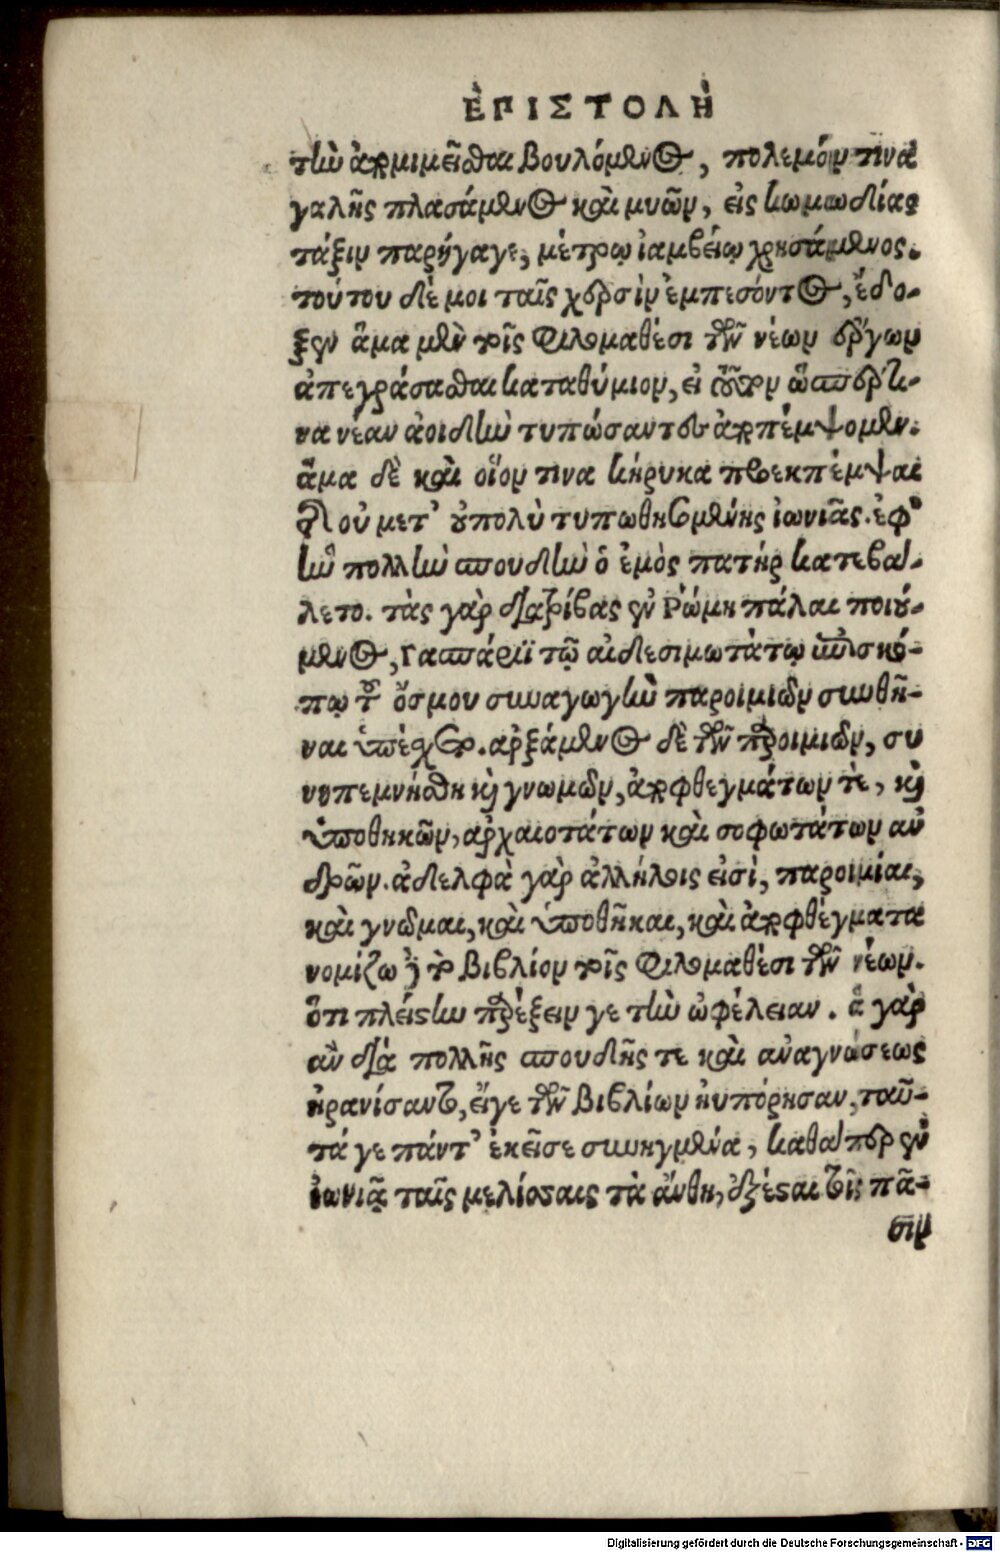 ἘΠΙΣΤΟΛῊ
τὴν ἀπομιμεῖσθαι βουλόμενος, πολεμόν τινα
γαλῆς πλασάμενος καὶ μυῶν, εἰς κωμωδίας
τάξιν παρήγαγε, μέτρῳ ἰαμβείῳ χρησάμενος.
τούτου δέ μοι ταῖς χερσὶν ἐμπεσόντος, ἔδο-
ξεν ἅμα μὲν τοῖς φιλομαθέσι τῶν νέων ἔργων
ἀπεγράσασθαι καταθύμιον, εἰ ὥσπερ τι-
να νέαν ἀοιδὴν τυπώσαντες ἀποπέμψομεν.
ἅμα δὲ καὶ οἷόν τινα κήρυκα προεκπέμψαι
τῆς οὐ μετ' οὐπολὺ τυπωθησομένης ἰωνιᾶς. ἐφ'
ᾗ πολλὴν σπουδὴν ὁ ἐμὸς πατὴρ κατεβάλ-
λετο. τὰς γὰρ διατρίβας ἐν Ῥώμῃ πάλαι ποιού-
μενος, Γασπάρῳ τῷ αἰδεσιμωτάτῳ ἐπισκό-
πῳ τοῦ ὄσμου συναγωγὴν παροιμιῶν συνθῆ-
ναι ὑπέσχετο. ἀρξάμενος δὲ τῶν παροιμιῶν, συ
νεπεμνήσθη καὶ γνωμῶν, ἀποφθεγμάτων τὲ, καὶ
ὑποθηκῶν, ἀρχαιοτάτων καὶ σοφωτάτων ἀν
δρῶν. ἀδελφὰ γὰρ ἀλλήλοις εἰσὶ, παροιμίαι,
καὶ γνῶμαι, καὶ ὑποθῆκαι, καὶ ἀποφθέγματα
νομίζω δὲ τὸ βιβλίον τοῖς φιλομαθέσι τῶν νέων.
ὅτι πλείστην παρέξειν γε τὴν ὠφέλειαν. ἃ γὰρ
ἂν διὰ πολλῆς σπουδῆς τε καὶ ἀναγνώσεως
ἠρανίσαντο, εἴγε τῶν βιβλίων ηὐπόρησαν, ταῦ-
τά γε πάντ' ἐκεῖσε συνηγμένα, καθάπερ ἐν
ἰωνιᾷ ταῖς μελίσσαις τὰ ἄνθη, ἔξεσται τοῖς πᾶ-
σιν
Digitalisierung gefördert durch die Deutsche Forschungsgemeinschaft - DFG